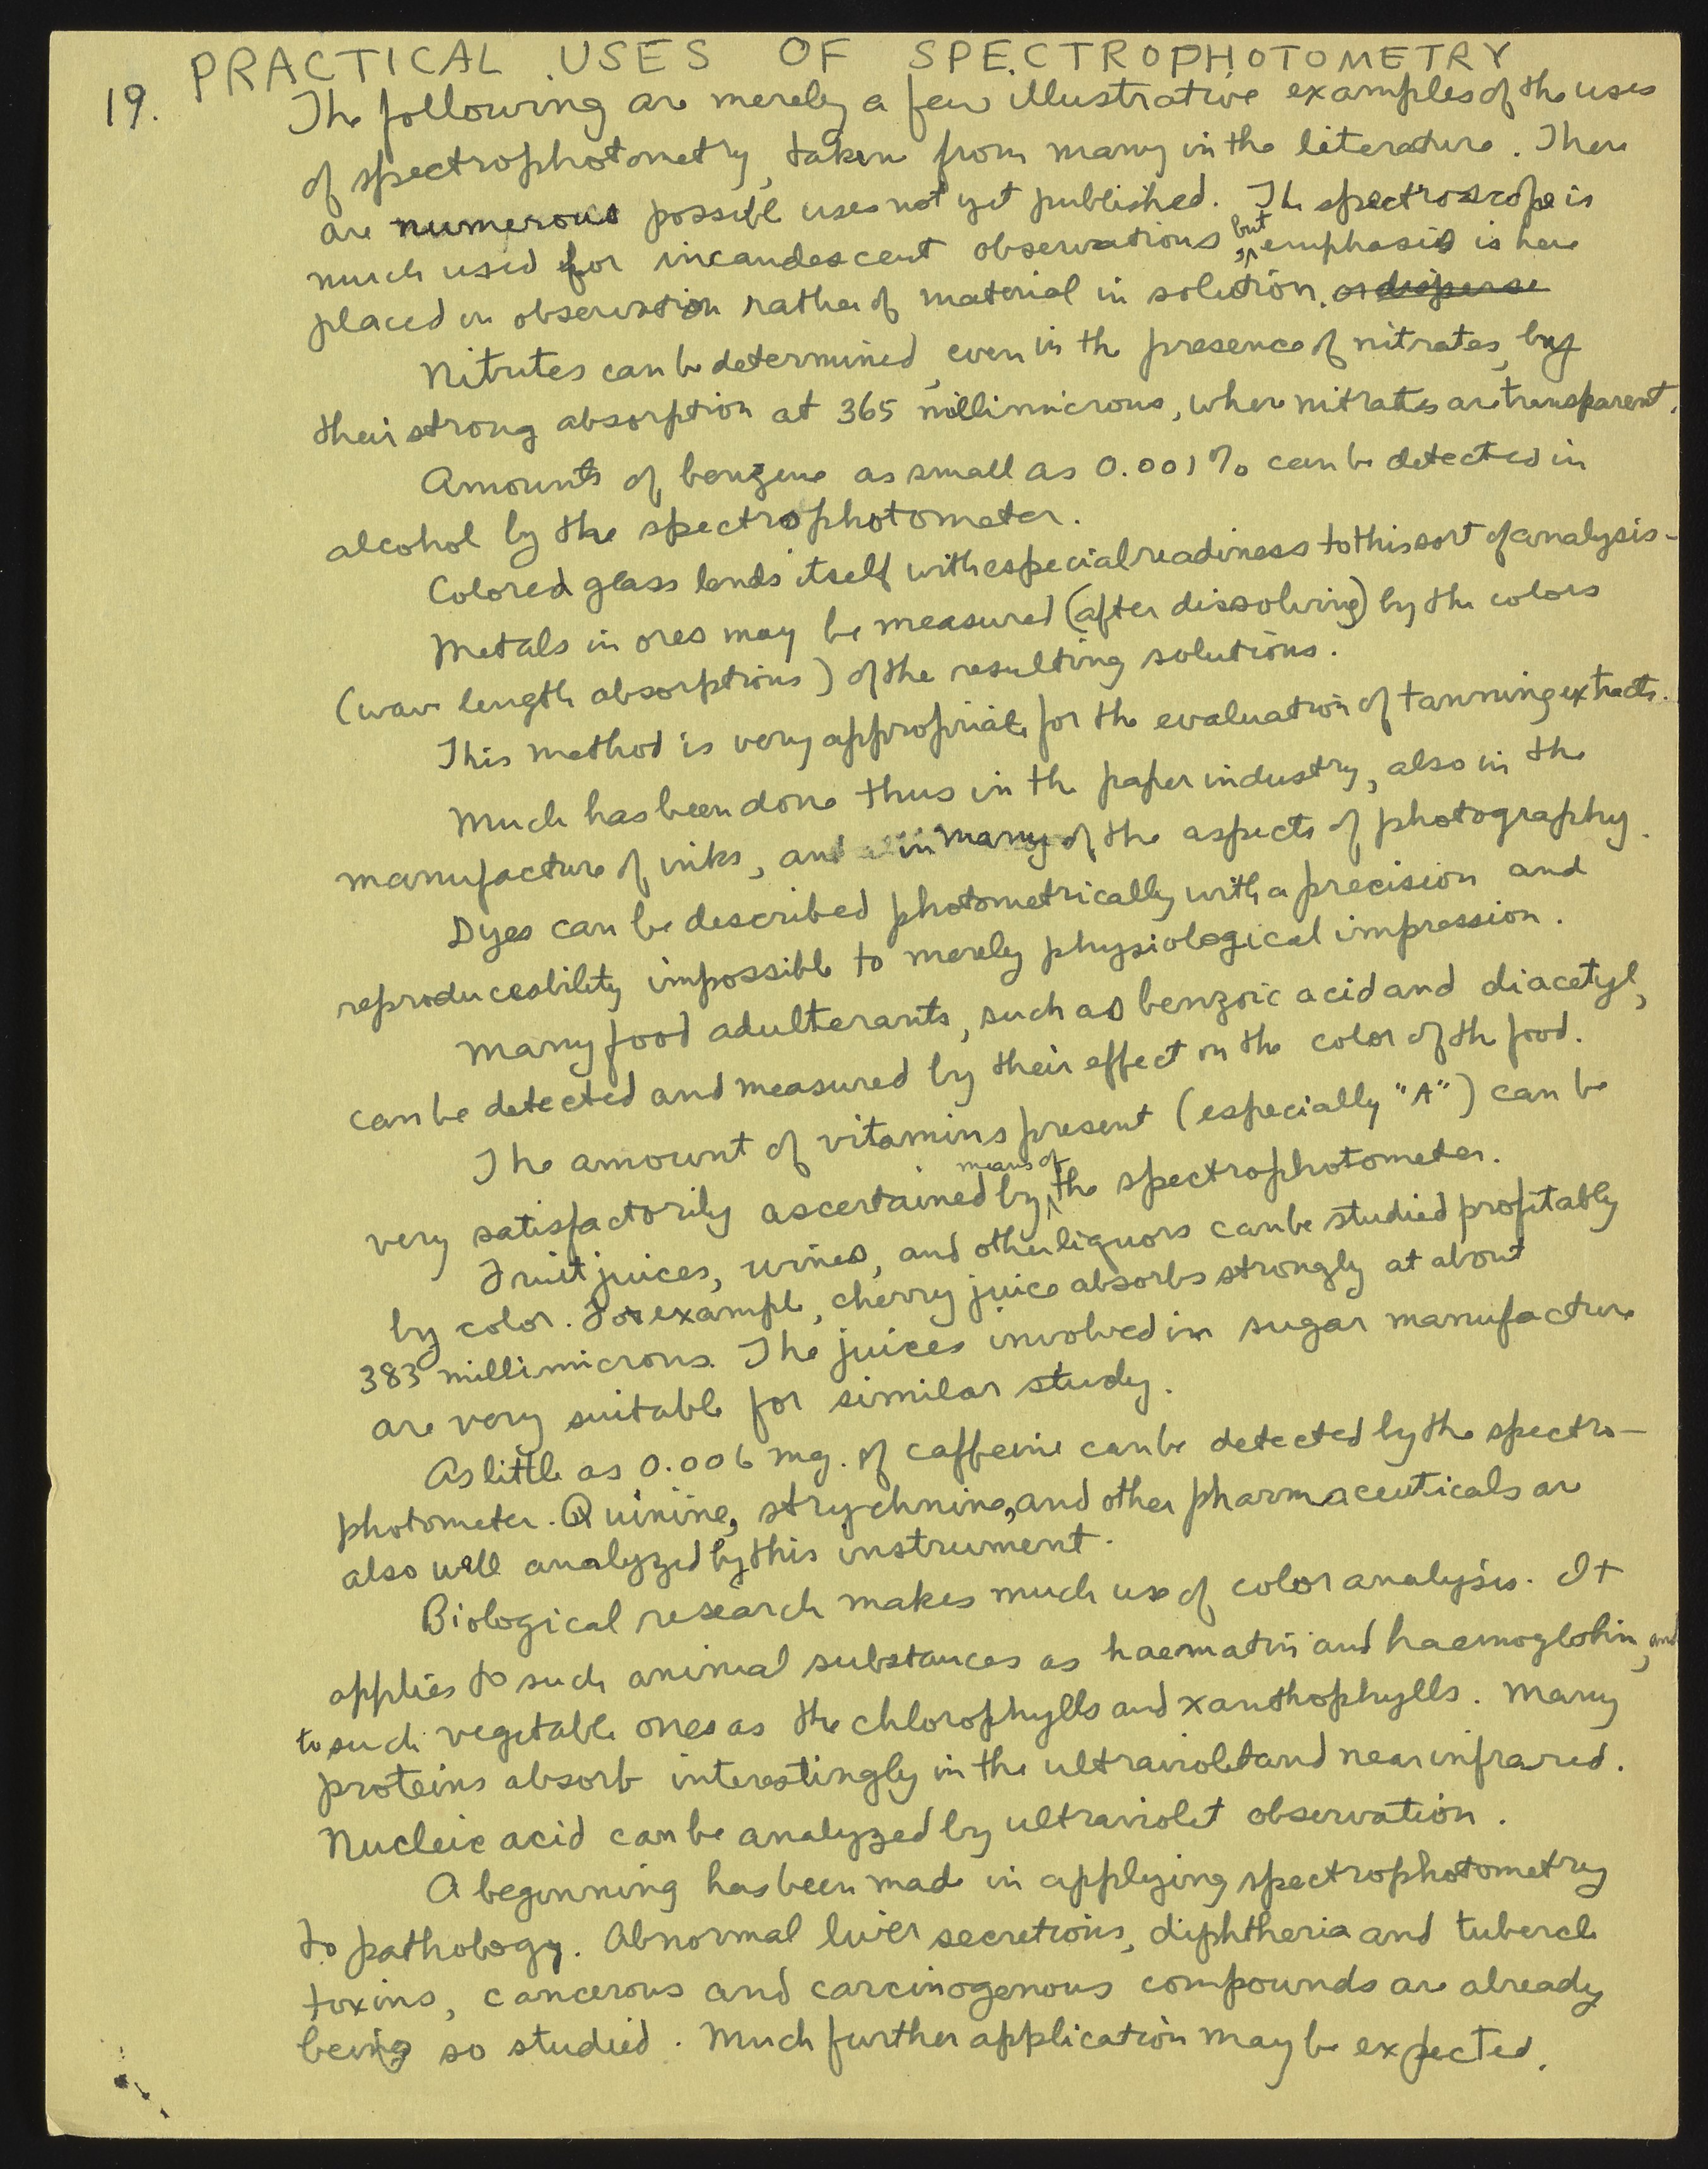 PRACTICAL USES OF SPECTROPHOTOMETRY
19. The following are merely a few illustrative examples of the uses
of spectrophotometry, taken from many in the literature. There
are numerous possible uses not yet published. The spectroscope is
much used for incandescent observations, but emphasis is here
placed on observation rather of material in solution. or disperse
Nitrites can be determined, even in the presence of nitrates, by
their strong absorption at 365 millimicrons, where nitrates are transparent.
Amounts of benzene as small as 0.001% can be detected in
alcohol by the spectrophotometer.
Colored glass lends itself with especial readiness to this sort of analysis-
Metals in ores may be measured (after dissolving) by the colors
(wave length absorptions) of the resulting solutions.
This method is very appropriate for the evaluation of tanning extracts.
Much has been done thus in the paper industry, also in the
manufacture of inks, and in many of the aspects of photography.
Dyes can be described photometrically with a precision and
reproduceability impossible to merely physiological impression.
Many food adulterants, such as benzoic acid and diacetyl,
can be detected and measured by their effect on the color of the food.
The amount of vitamins present (especially "A") can be
very satisfactorily ascertained by means of the spectrophotometer.
Fruit juices, wines, and other liquors can be studied profitably
by color. For example, cherry juice absorbs strongly at about
383 millimicrons. The juices involved in sugar manufacture
are very suitable for similar study.
As little as 0.006 mg. of caffeine can be detected by the spectro-
photometer. Quinine, strychnine, and other pharmaceuticals are
also well analyzed by this instrument.
Biological research makes much use of color analysis. It
applies to such animal substances as haematin and haemoglobin, and
to such vegetable ones as the chlorophylls and xanthophylls. Many
proteins absorb interestingly in the ultraviolet and near infrared.
Nucleic acid can be analyzed by ultraviolet observation.
A beginning has been made in applying spectrophotometry
to pathology. Abnormal liver secretions, diphtheria and tubercle
toxins, cancerous and carcinogenous compounds are already
being so studied. Much further application may be expected.